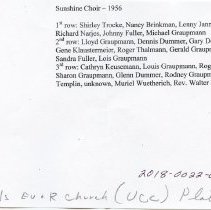 Sunshine Choir – 1956
1st row: Shirley Trocke, Nancy Brinkman, Lenny Jann
Richard Narjes, Johnny Fuller, Michael Graupmann
2nd row: Lloyd Graupmann, Dennis Dummer, Gary De
Gene Klaustermeier, Roger Thalmann, Gerald Graupm
Sandra Fuller, Lois Graupmann
3rd row: Cathryn Keusemann, Louis Graupmann, Rog
Sharon Graupmann, Glenn Dummer, Rodney Graupm
Templin, unknown, Muriel Wuetherich, Rev. Walter
2018-0022-0
ls Ev & R Church (UCC) Pla